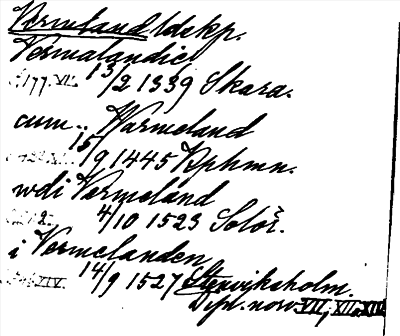 Vermeland ldskp.
Vermalandie
177. VII. 13/2 1339 Skara.
cum .. Warmeland
15/9 1445 Kphmn.
wdi Vermeland
4/10 1523 Solör.
i Vermelanden
XIV. 14/9 1527 Stenviksholm.
Dipl. norv. VII, XII, XIV